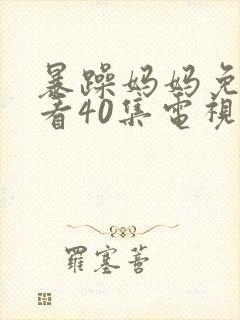 暴躁妈妈免
看40集電視
羅塞菩